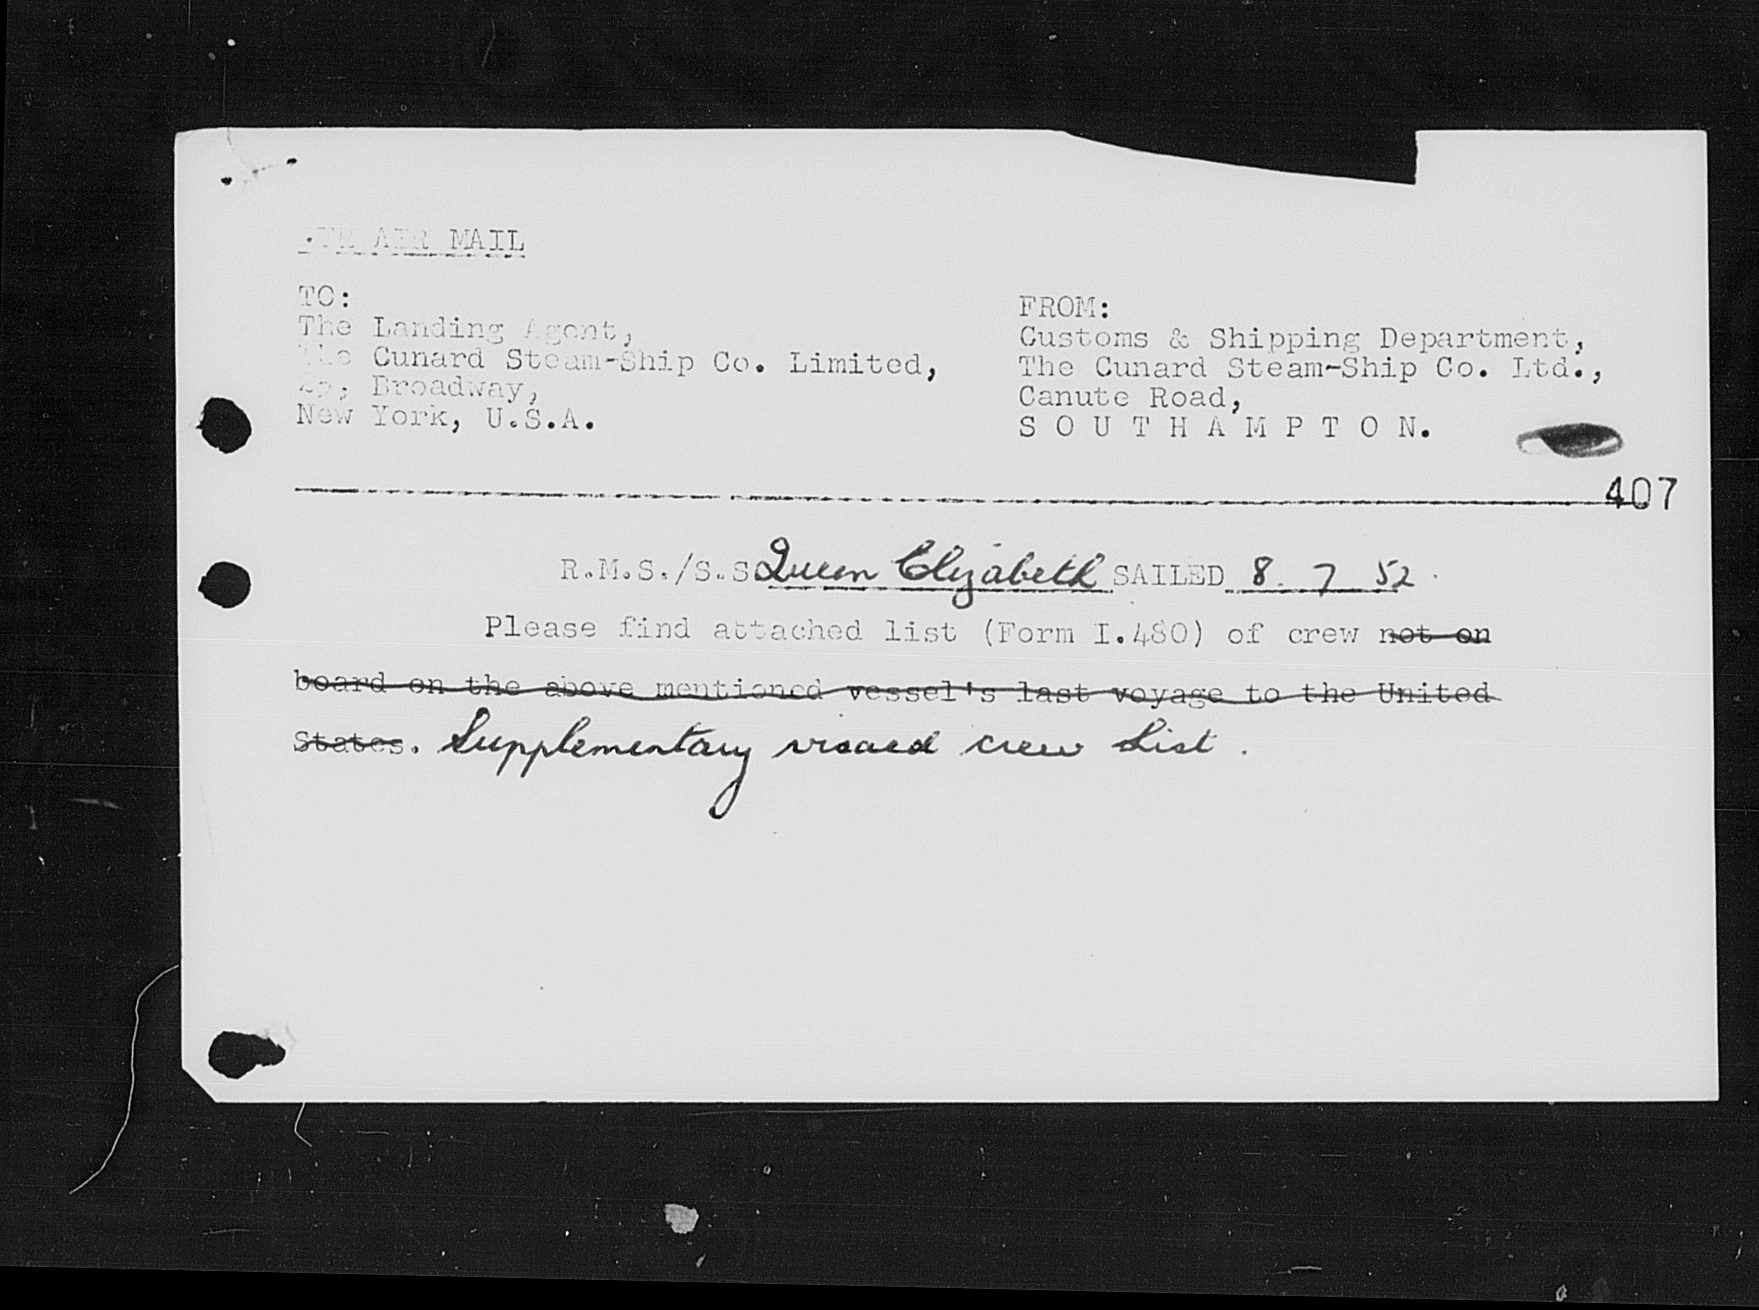 AIR MAIL
TO:
The Landing Agent,
The Cunard Steam-Ship Co. Limited,
Broadway,
New York, U.S.A.
FROM:
Customs & Shipping Department,
The Cunard Steam-Ship Co. Ltd.,
Canute Road,
S O U T H A M P T O N.
407
R.M.S./S.S Queen Elizabeth SAILED 8. 7 52.
Please find attached list (Form I.480) of crew not on
board on the above mentioned vessel's last voyage to the United
States. Supplementary visaed crew list.